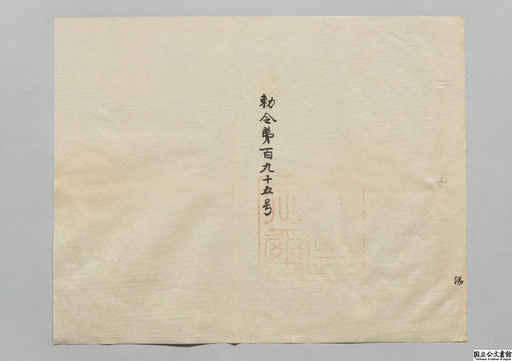 勅令第百九十五号
国立公文書館
National Archives of Japan